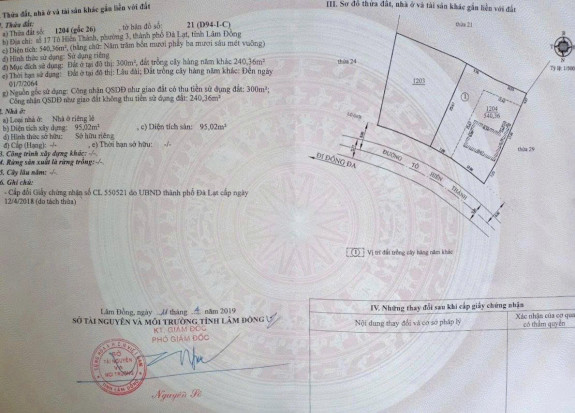 Thửa đất, nhà ở và tài sản khác gắn liền với đất
1. Thửa đất:
a) Thửa đất số: 1204 (gốc 26) , tờ bản đồ số: 21 (D94-I-C)
b) Địa chỉ: số 17 Tô Hiến Thành, phường 3, thành phố Đà Lạt, tỉnh Lâm Đồng
c) Diện tích: 540,36m², (bằng chữ: Năm trăm bốn mươi phẩy ba mươi sáu mét vuông)
d) Hình thức sử dụng: Sử dụng riêng
đ) Mục đích sử dụng: Đất ở tại đô thị: 300m², đất trồng cây hàng năm khác 240,36m²
e) Thời hạn sử dụng: Đất ở tại đô thị: Lâu dài; Đất trồng cây hàng năm khác: Đến ngày
01/7/2064
g) Nguồn gốc sử dụng: Công nhận QSDĐ như giao đất có thu tiền sử dụng đất: 300m²;
Công nhận QSDĐ như giao đất không thu tiền sử dụng đất: 240,36m²
2. Nhà ở:
a) Loại nhà ở: Nhà ở riêng lẻ
b) Diện tích xây dựng: 95,02m² , c) Diện tích sàn: 95,02m²
d) Hình thức sở hữu: Sở hữu riêng
đ) Cấp (Hạng): -/- , e) Thời hạn sở hữu: -/-
3. Công trình xây dựng khác: -/-
4. Rừng sản xuất là rừng trồng: -/-
5. Cây lâu năm: -/-
6. Ghi chú:
- Cấp đổi Giấy chứng nhận số CL 550521 do UBND thành phố Đà Lạt cấp ngày
12/4/2018 (do tách thửa)
Lâm Đồng, ngày tháng năm 2019
SỞ TÀI NGUYÊN VÀ MÔI TRƯỜNG TỈNH LÂM ĐỒNG
KT. GIÁM ĐỐC
PHÓ GIÁM ĐỐC
SỞ
TÀI NGUYÊN
VÀ
MÔI TRƯỜNG
III. Sơ đồ thửa đất, nhà ở và tài sản khác gắn liền với đất
thửa 21
thửa 24
1203
1
1204
540,36
thửa 29
ĐI ĐỐNG ĐA
ĐƯỜNG TÔ HIẾN THÀNH
1 Vị trí đất trồng cây hàng năm khác
IV. Những thay đổi sau khi cấp giấy chứng nhận
Nội dung thay đổi và cơ sở pháp lý
Xác nhận của cơ qua
có thẩm quyền